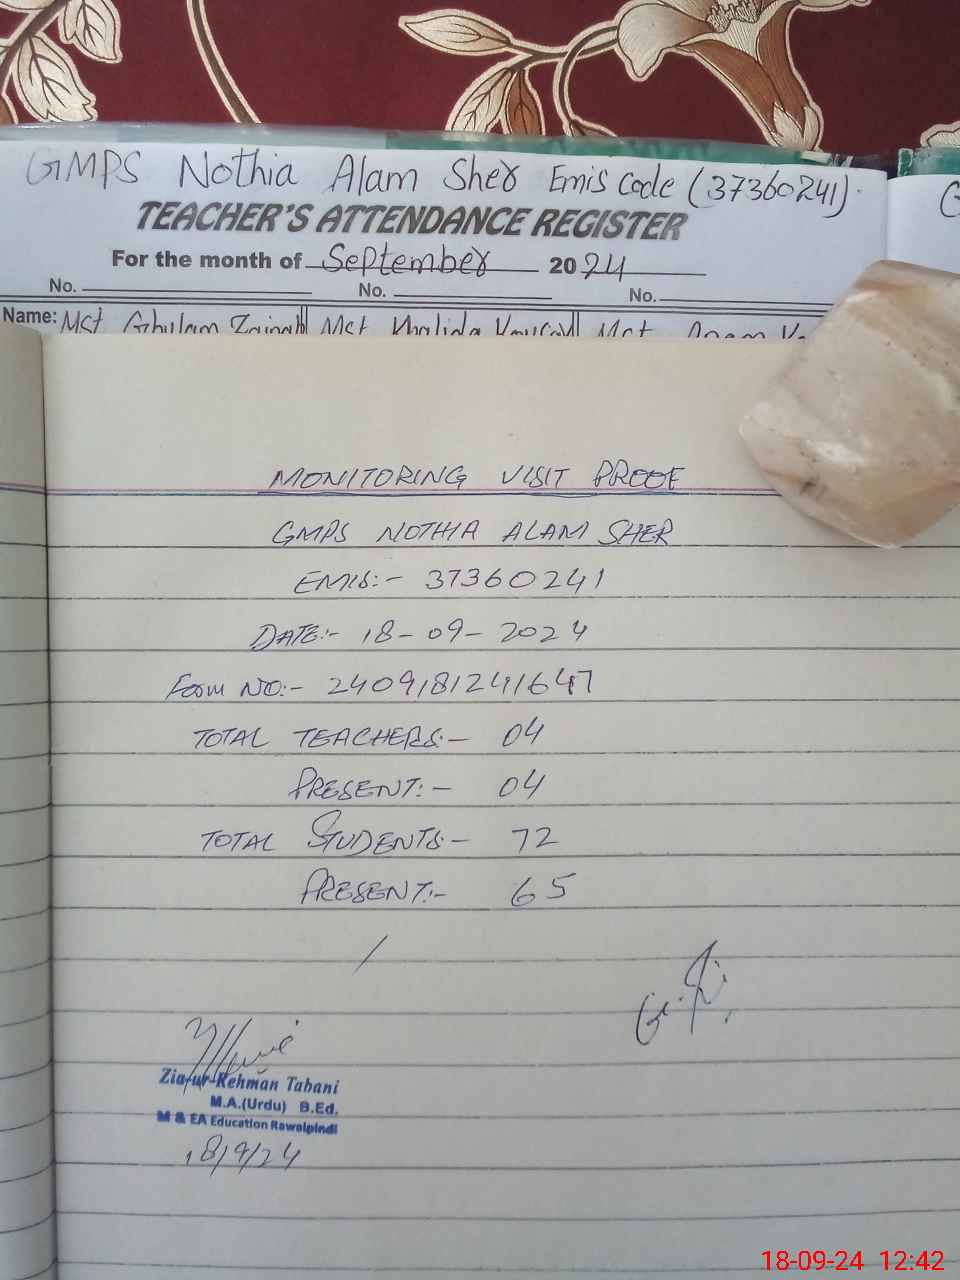 GMPS Nothia Alam Sher Emis code (37360241).
TEACHER'S ATTENDANCE REGISTER
For the month of September 2024
No. No. No.
Name: Mst Ghulam Zainab Mst Khalida Mst Anam
MONITORING VISIT PROOF
GMPS NOTHIA ALAM SHER
EMIS:- 37360241
DATE:- 18-09-2024
Form NO:- 2409181241647
TOTAL TEACHERS:- 04
PRESENT:- 04
TOTAL STUDENTS:- 72
PRESENT:- 65
Zia-ur-Rehman Tabani
M.A.(Urdu) B.Ed.
M & EA Education Rawalpindi
18/9/24
18-09-24 12:42